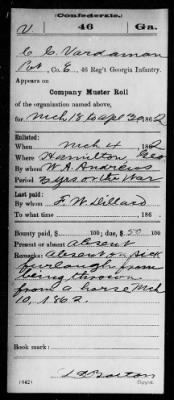 (Confederate.)
V. 46 Ga.
C C Vardaman
Pvt, Co. E, 46 Reg't Georgia Infantry.
Appears on
Company Muster Roll
of the organization named above,
for Mch 18 to Apl 30, 1862
Enlisted:
When Mch 4, 1862
Where Hamilton, Geo
By whom W. A. Andrews
Period 3 yrs or the War
Last paid:
By whom F. W. Dillard
To what time , 186
Bounty paid $ 100; due $ 50 100
Present or absent Absent
Remarks: Absent on sick
furlough from
being thrown
from a horse Mch
10, 1862.
Book mark:
(642)
Copyist.